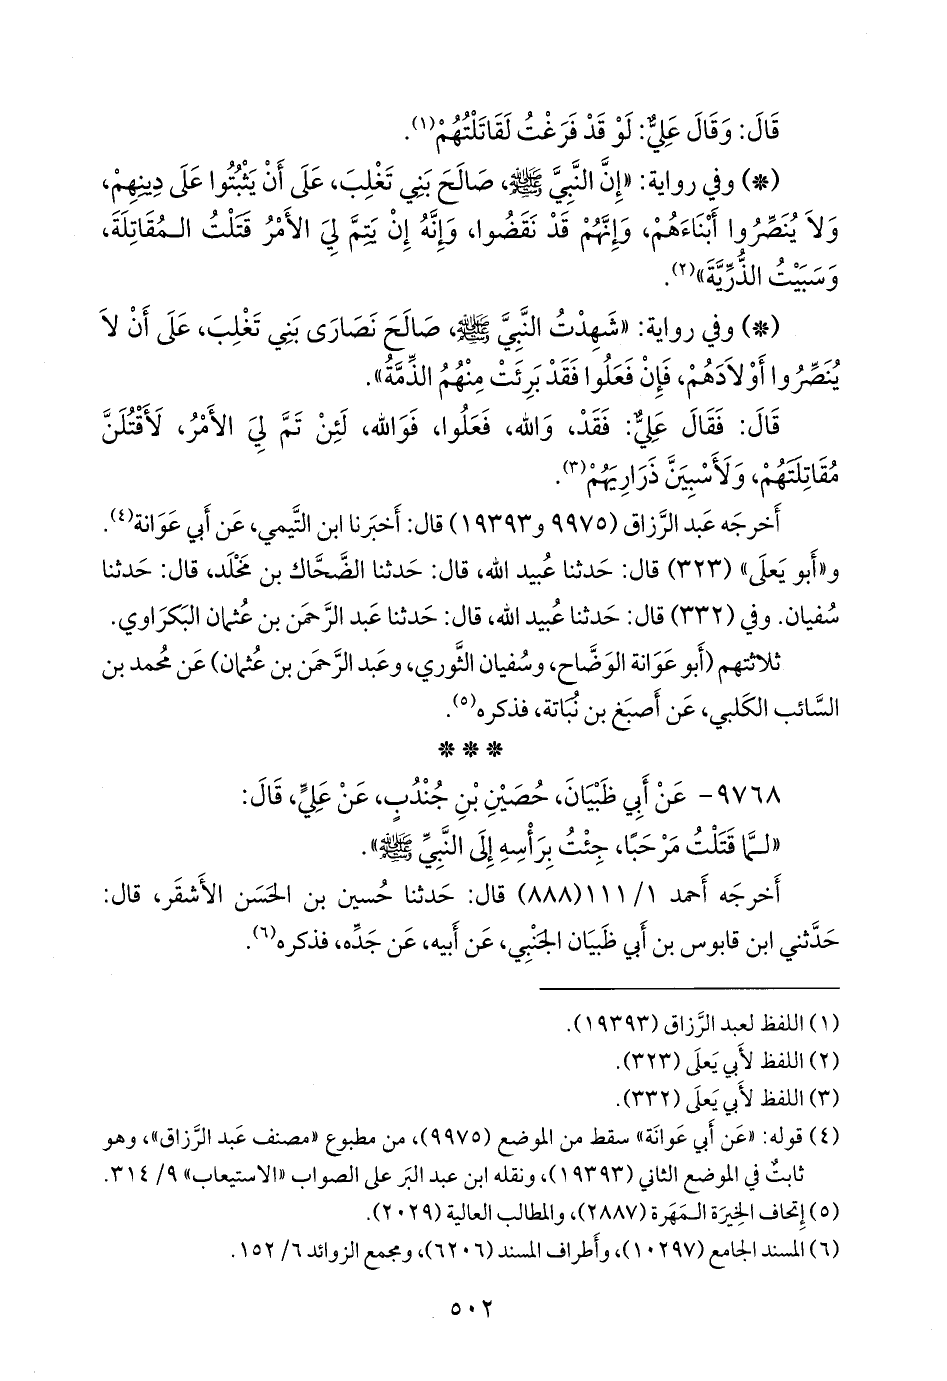 قَالَ: وَقَالَ عَلِيٌّ: لَوْ قَدْ فَرَغْتُ لَقَاتَلْتُهُمْ(١).
(*) وفي رواية: «إِنَّ النَّبِيَّ ﷺ، صَالَحَ بَنِي تَغْلِبَ، عَلَى أَنْ يَثْبُتُوا عَلَى دِينِهِمْ،
وَلاَ يُنَصِّرُوا أَبْنَاءَهُمْ، وَإِنَّهُمْ قَدْ نَقَضُوا، وَإِنَّهُ إِنْ يَتِمَّ لِيَ الأَمْرُ قَتَلْتُ الـمُقَاتِلَةَ،
وَسَبَيْتُ الذُّرِّيَّةَ»(٢).
(*) وفي رواية: «شَهِدْتُ النَّبِيَّ ﷺ، صَالَحَ نَصَارَى بَنِي تَغْلِبَ، عَلَى أَنْ لاَ
يُنَصِّرُوا أَوْلاَدَهُمْ، فَإِنْ فَعَلُوا فَقَدْ بَرِئَتْ مِنْهُمُ الذِّمَّةُ».
قَالَ: فَقَالَ عَلِيٌّ: فَقَدْ، وَالله، فَعَلُوا، فَوَالله، لَئِنْ تَمَّ لِيَ الأَمْرُ، لَأَقْتُلَنَّ
مُقَاتِلَتَهُمْ، وَلَأَسْبِيَنَّ ذَرَارِيَهُمْ(٣).
أَخرجَه عَبد الرَّزاق (٩٩٧٥ و١٩٣٩٣) قال: أَخبَرنا ابن التَّيمي، عَن أَبي عَوَانة(٤).
و«أَبو يَعلَى» (٣٢٣) قال: حَدثنا عُبيد الله، قال: حَدثنا الضَّحَّاك بن مَخْلَد، قال: حَدثنا
سُفيان. وفي (٣٣٢) قال: حَدثنا عُبيد الله، قال: حَدثنا عَبد الرَّحمَن بن عُثمان البَكرَاوي.
ثلاثتهم (أَبو عَوَانة الوَضَّاح، وسُفيان الثَّوري، وعَبد الرَّحمَن بن عُثمان) عَن مُحمد بن
السَّائب الكَلبي، عَن أَصبَغ بن نُبَاتة، فذكره(٥).
* * *
٩٧٦٨- عَنْ أَبِي ظَبْيَانَ، حُصَيْنِ بْنِ جُنْدُبٍ، عَنْ عَلِيٍّ، قَالَ:
«لـمَّا قَتَلْتُ مَرْحَبًا، جِئْتُ بِرَأْسِهِ إِلَى النَّبِيِّ ﷺ».
أَخرجَه أَحمد ١/ ١١١(٨٨٨) قال: حَدثنا حُسين بن الحَسَن الأَشقَر، قال:
حَدَّثني ابن قابوس بن أَبي ظَبيَان الجَنْبي، عَن أَبيه، عَن جَدِّه، فذكره(٦).
(١) اللفظ لعبد الرَّزاق (١٩٣٩٣).
(٢) اللفظ لأَبي يَعلَى (٣٢٣).
(٣) اللفظ لأَبي يَعلَى (٣٣٢).
(٤) قوله: «عَن أَبي عَوانَة» سقط من الموضع (٩٩٧٥)، من مطبوع «مصنف عَبد الرَّزاق»، وهو
ثابتٌ في الموضع الثاني (١٩٣٩٣)، ونقله ابن عبد البَر على الصواب «الاستيعاب» ٩/ ٣١٤.
(٥) إِتحاف الخِيرَة الـمَهَرة (٢٨٨٧)، والمطالب العالية (٢٠٢٩).
(٦) المسند الجامع (١٠٢٩٧)، وأَطراف المسند (٦٢٠٦)، ومجمع الزوائد ٦/ ١٥٢.
٥٠٢